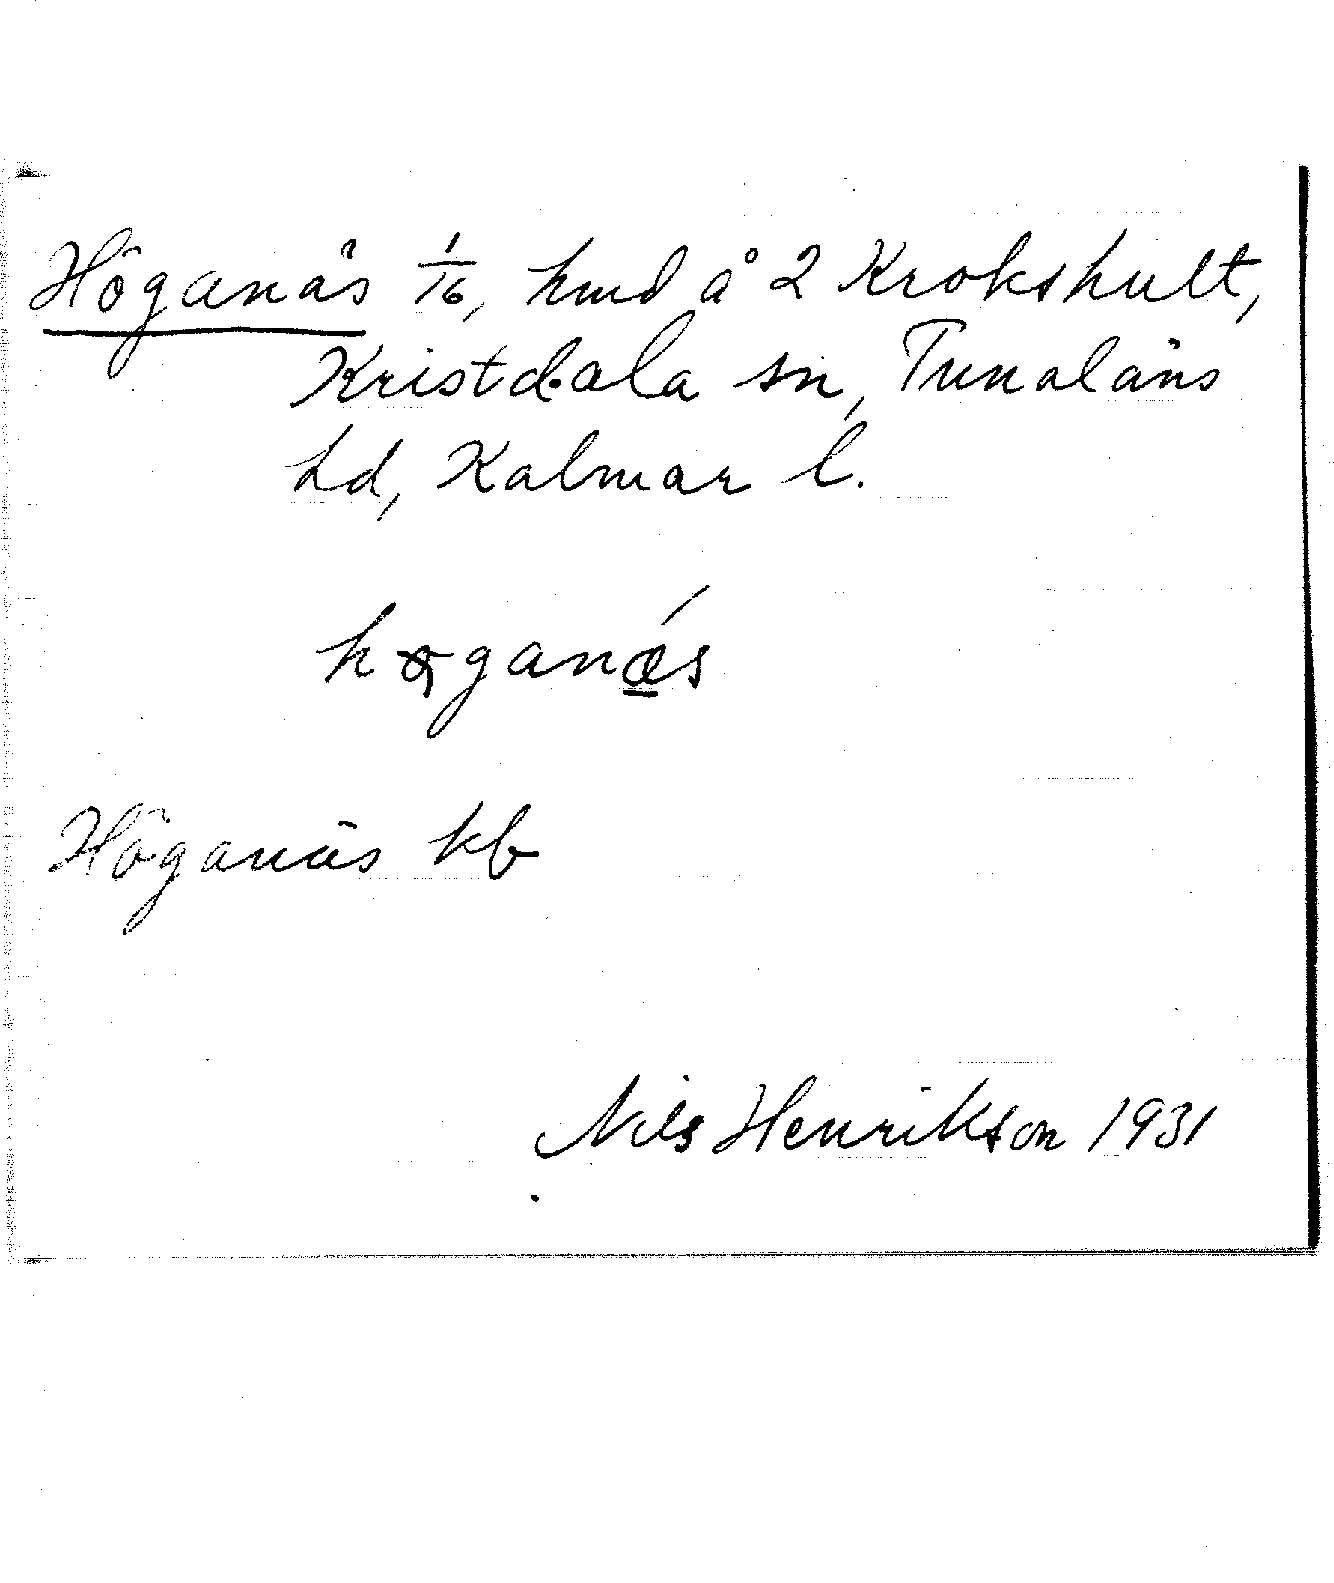 Höganäs 1/16, hmd å 2 Krokshult,
Kristdala sn, Tunaläns
hd, Kalmar l.
Höganäs kb
Nils Henrikson 1931